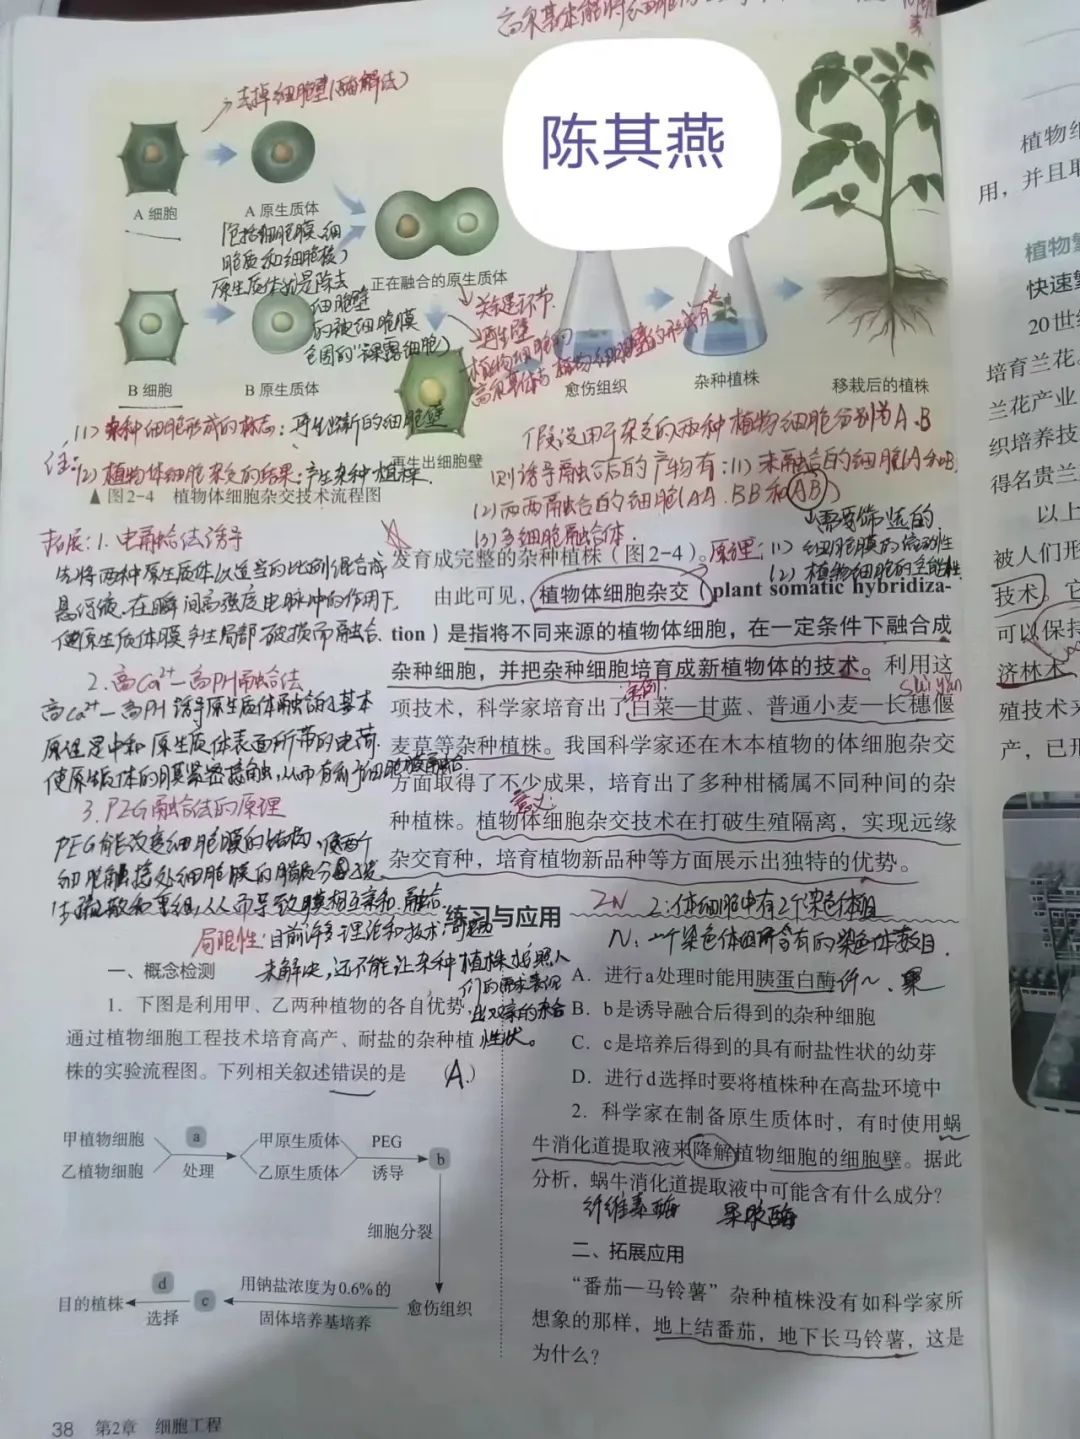 陈其燕
去掉细胞壁(酶解法)
A 细胞
A 原生质体
(包括细胞膜、细
胞质和细胞核)
原生质体就是除去
细胞壁
的被细胞膜
包围的“裸露细胞”)
正在融合的原生质体
关键环节
再生壁
植物细胞的
B 细胞
B 原生质体
再生出细胞壁
愈伤组织
杂种植株
移栽后的植株
注:
(1) 杂种细胞形成的标志:再生出新的细胞壁
(2) 植物体细胞杂交的结果:产生杂种植株.
▲图2-4 植物体细胞杂交技术流程图
假设用于杂交的两种植物细胞分别为A、B
则诱导融合后的产物有:(1) 未融合的细胞(A和B)
(2) 两两融合的细胞(AA、BB和AB)
(3) 多细胞融合体.
需要筛选的.
拓展:1. 电融合法诱导
先将两种原生质体以适当的比例混合成
悬浮液.在瞬间高强度电脉冲的作用下.
使原生质体膜产生局部破损而融合.
2. 高Ca²⁺—高PH融合法
高Ca²⁺—高PH诱导原生质体融合的基本
原理是中和原生质体表面所带的电荷.
使原生质体的膜紧密接触,从而有利于细胞膜融合.
3. PEG融合法的原理
PEG能改变细胞膜的结构,使两个
细胞接触处细胞膜的脂质分子发
生疏散和重组,从而导致膜相互亲和、融合.
局限性:目前许多理论和技术问题
未解决,还不能让杂种植株按照人
们的需求表现
出双亲的杂合
性状。
发育成完整的杂种植株(图2-4)。
原理:(1) 细胞膜的流动性
(2) 植物细胞的全能性.
由此可见,植物体细胞杂交(plant somatic hybridiza-
tion)是指将不同来源的植物体细胞,在一定条件下融合成
杂种细胞,并把杂种细胞培育成新植物体的技术。利用这
实例:
项技术,科学家培育出了白菜—甘蓝、普通小麦—长穗偃
麦草等杂种植株。我国科学家还在木本植物的体细胞杂交
方面取得了不少成果,培育出了多种柑橘属不同种间的杂
意义:
种植株。植物体细胞杂交技术在打破生殖隔离,实现远缘
杂交育种,培育植物新品种等方面展示出独特的优势。
练习与应用
2N 2:体细胞中有2个染色体组
N:一个染色体组所含有的染色体数目.
一、概念检测
1. 下图是利用甲、乙两种植物的各自优势,
通过植物细胞工程技术培育高产、耐盐的杂种植
株的实验流程图。下列相关叙述错误的是 (A.)
甲植物细胞
乙植物细胞
a
处理
甲原生质体
乙原生质体
PEG
诱导
b
细胞分裂
愈伤组织
用钠盐浓度为0.6%的
固体培养基培养
c
d
选择
目的植株
A. 进行a处理时能用胰蛋白酶
B. b是诱导融合后得到的杂种细胞
C. c是培养后得到的具有耐盐性状的幼芽
D. 进行d选择时要将植株种在高盐环境中
2. 科学家在制备原生质体时,有时使用蜗
牛消化道提取液来降解植物细胞的细胞壁。据此
分析,蜗牛消化道提取液中可能含有什么成分?
纤维素酶 果胶酶
二、拓展应用
“番茄—马铃薯”杂种植株没有如科学家所
想象的那样,地上结番茄,地下长马铃薯,这是
为什么?
38 第2章 细胞工程
植物细
用,并且耳
植物繁
快速繁
20世纪
培育兰花
兰花产业
织培养技
得名贵兰
以上
被人们形
技术。它
可以保持
济林木
殖技术
产,已形